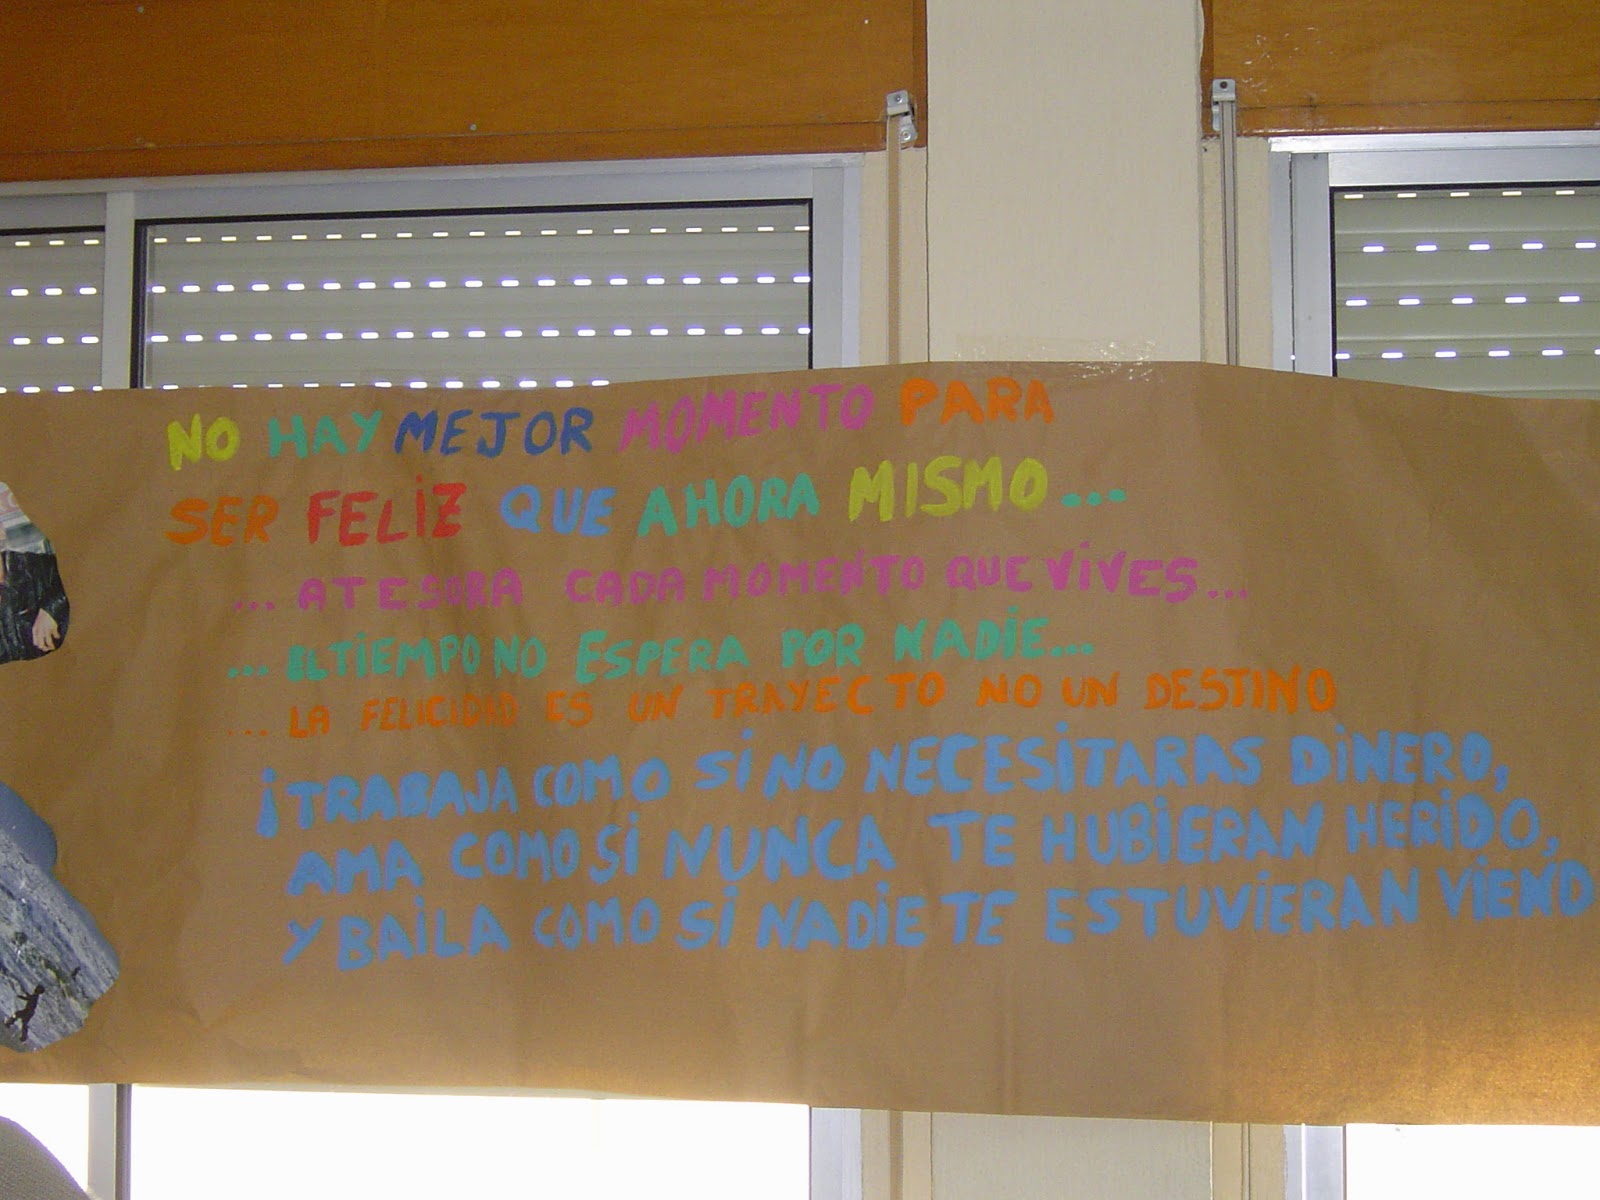 NO HAY MEJOR MOMENTO PARA
SER FELIZ QUE AHORA MISMO...
... ATESORA CADA MOMENTO QUE VIVES...
... EL TIEMPO NO ESPERA POR NADIE...
... LA FELICIDAD ES UN TRAYECTO NO UN DESTINO
¡TRABAJA COMO SI NO NECESITARAS DINERO,
AMA COMO SI NUNCA TE HUBIERAN HERIDO,
Y BAILA COMO SI NADIE TE ESTUVIERAN VIEND